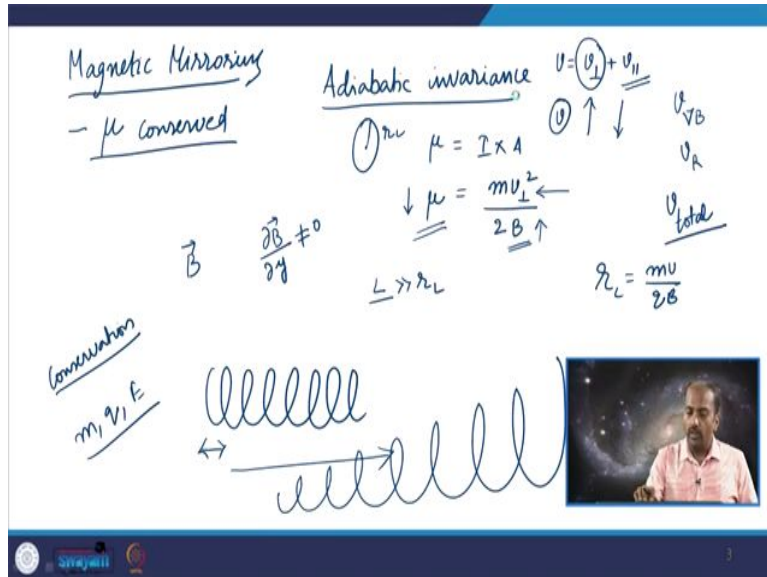 Magnetic Mirroring
- μ conserved
Adiabatic invariance
v = v⊥ + v||
v ↑ ↓
r_L
μ = I × A
↓ μ = mv⊥² / 2B ↑ ←
v_∇B
v_R
v_total
B⃗
∂B⃗/∂y ≠ 0
L >> r_L
r_L = mv/qB
Conservation
m, q, E
swayam
3